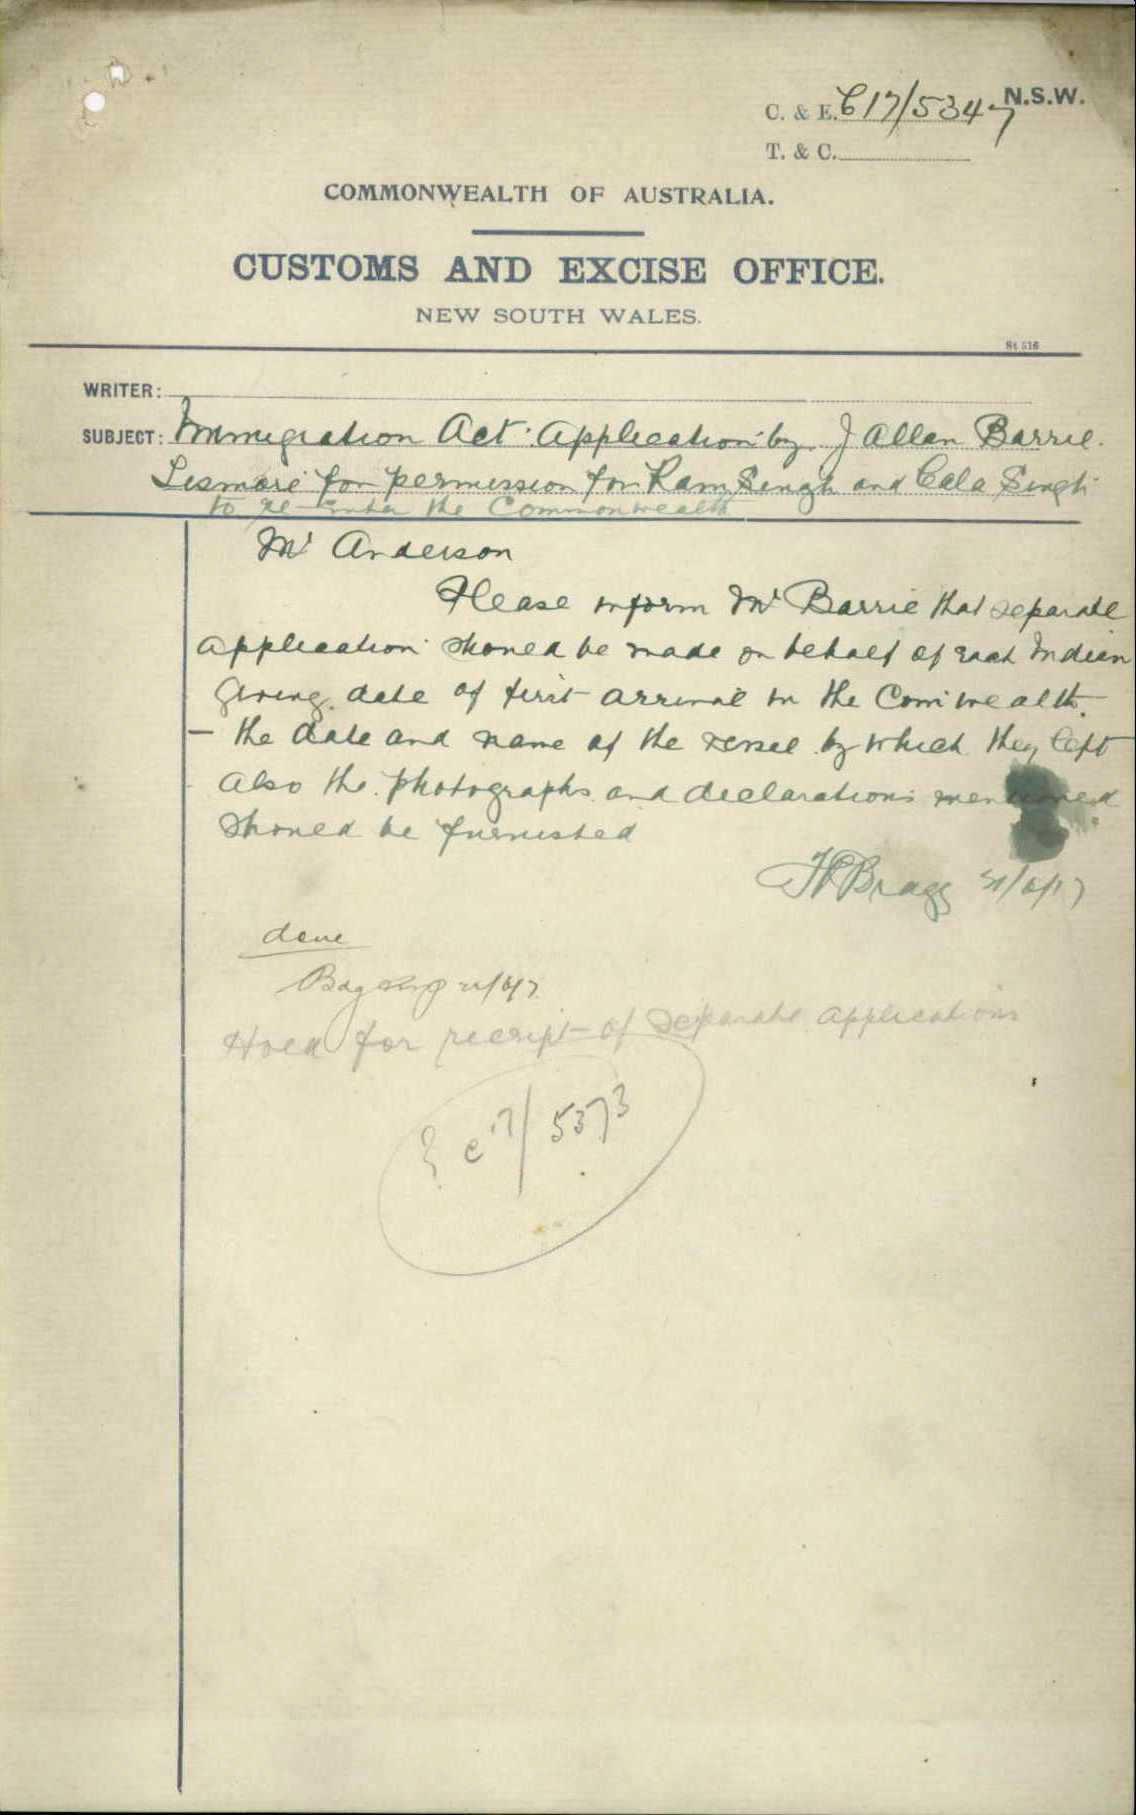 N.S.W.
C. & E. C17/5347
T. & C.
COMMONWEALTH OF AUSTRALIA.
CUSTOMS AND EXCISE OFFICE.
NEW SOUTH WALES.
St 516
WRITER:
SUBJECT: Immigration Act. Application by J Allan Barrie.
Lismore for permission for Ram Singh and Cala Singh
to re-enter the Commonwealth
Mr Anderson
Please inform Mr Barrie that separate
application should be made on behalf of each Indian
giving date of first arrival in the Comwealth.
– the date and name of the vessel by which they left
also the photographs and declarations mentioned
should be furnished
Bragg
done
Hold for receipt of separate applications
C17/5373